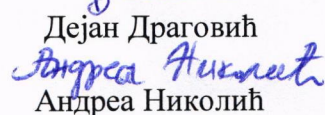 Дејан Драговић
Андреа Николић
Андреа Николић